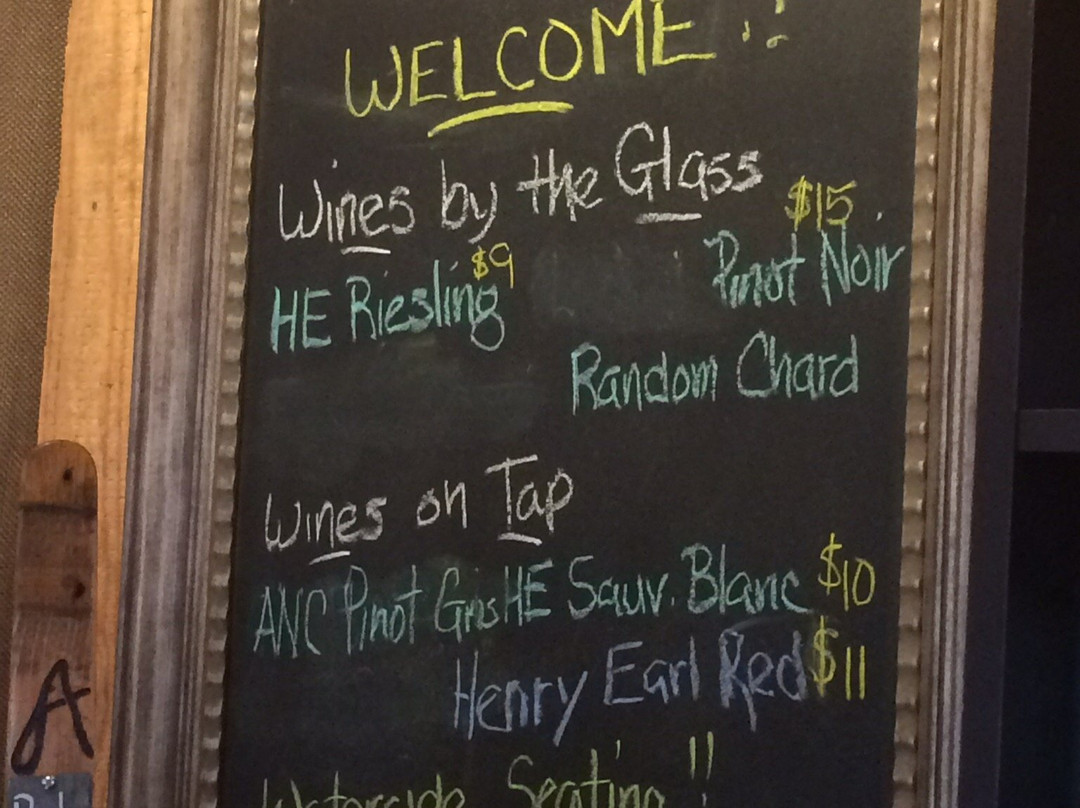 WELCOME!!
Wines by the Glass
$9
$15
HE Riesling
Pinot Noir
Random Chard
Wines on Tap
ANC Pinot Gris HE Sauv. Blanc $10
Henry Earl Red $11
Waterside Seating!!
A